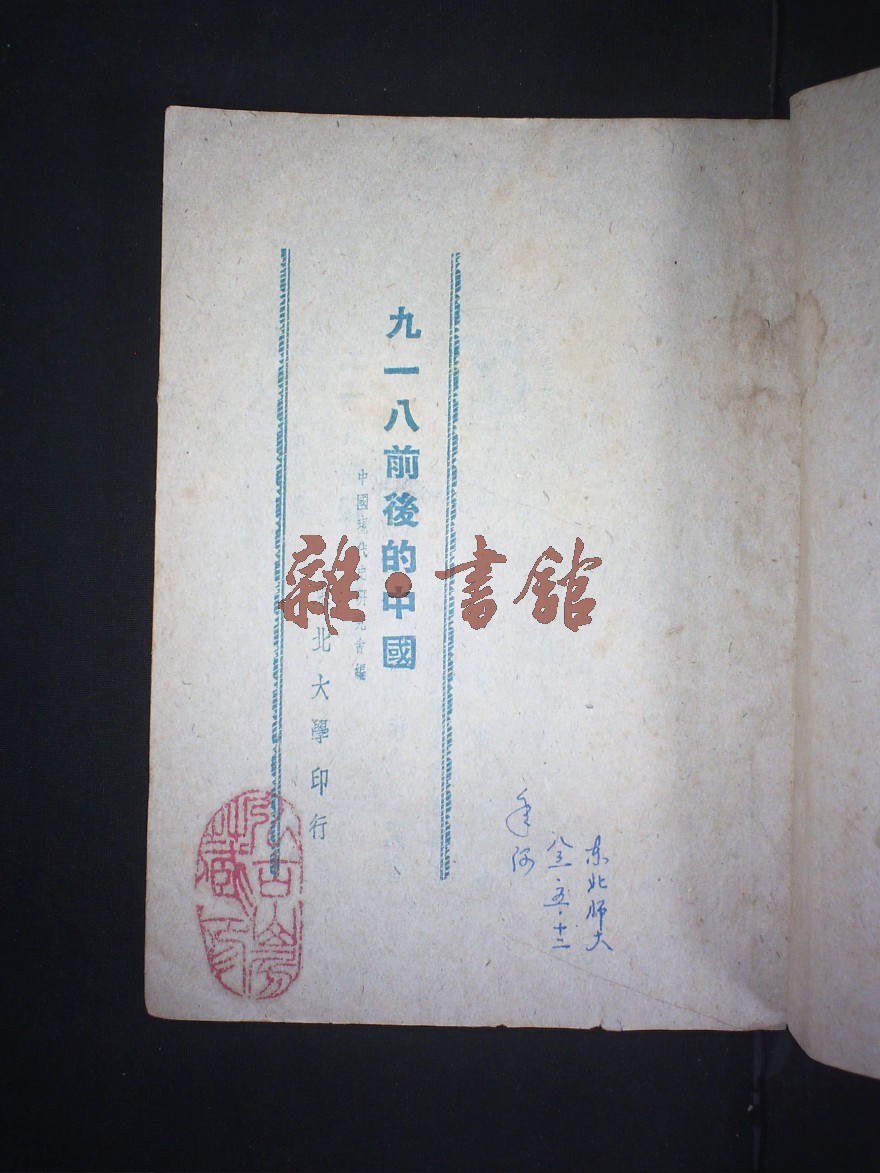 九一八前後的中國
中國現代史研究會編
北大學印行
雜·書舘
东北师大
八三·五·十二